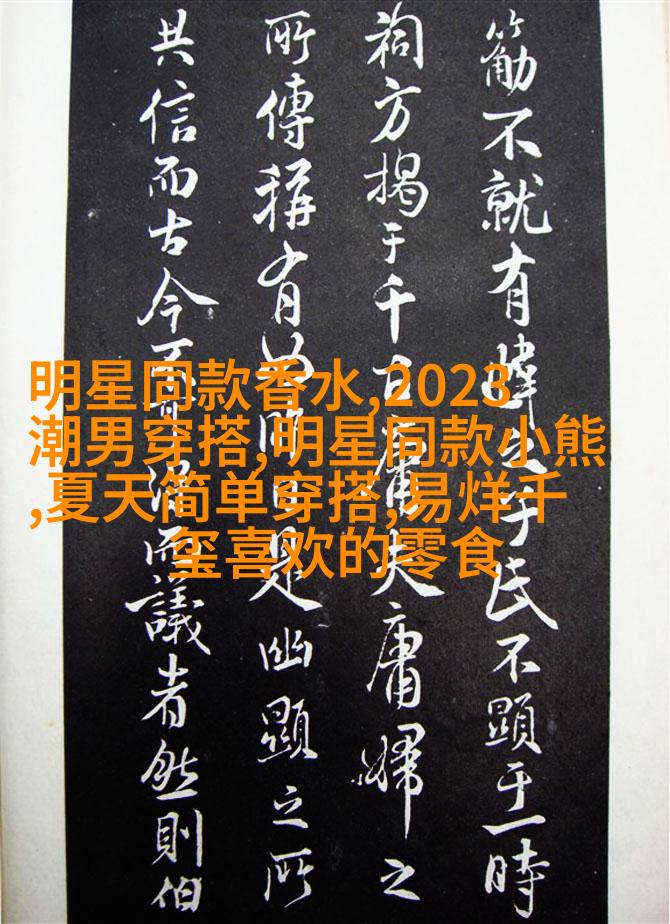 筋不就有
不顯于一時
祠方揭于千
庸夫庸婦之
所傳稱有
日是幽顯之所
共信而古今
議者然則伯
明星同款香水,2023
潮男穿搭,明星同款小熊
,夏天简单穿搭,易烊千
玺喜欢的零食